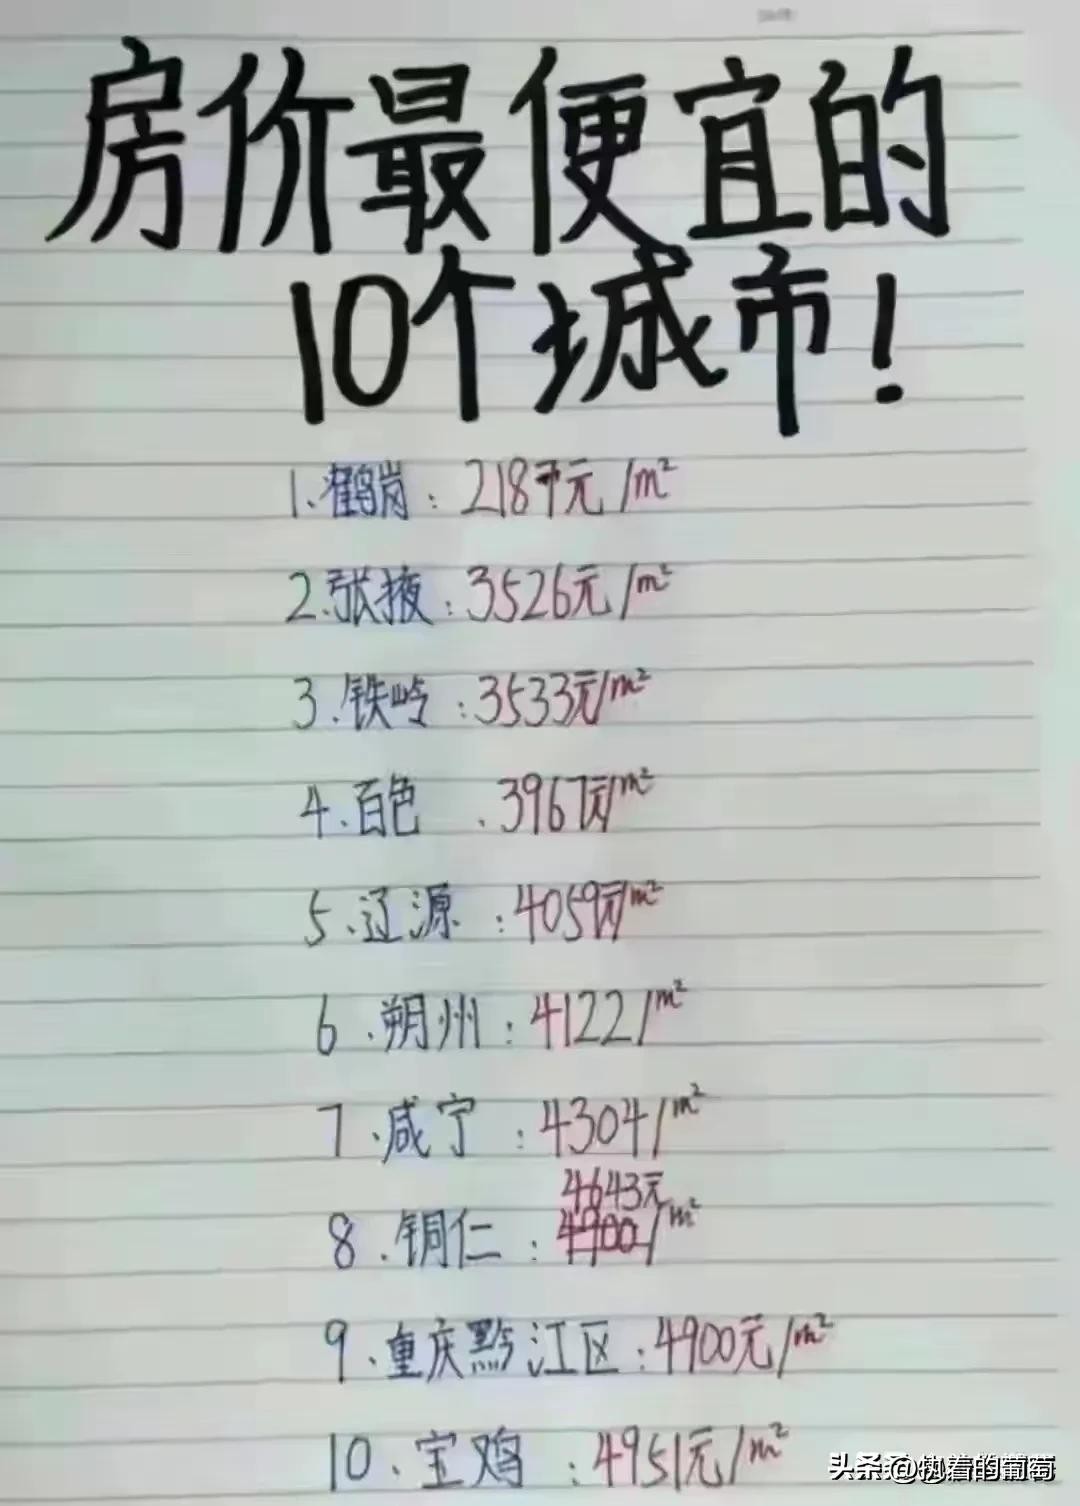 房价最便宜的
10个城市!
1、鹤岗:2187元/m²
2、张掖:3526元/m²
3、铁岭:3533元/m²
4、百色、3967元/m²
5、辽源:4059元/m²
6、朔州:4122/m²
7、咸宁:4304/m²
4643元
8、铜仁:4900/m²
9、重庆黔江区:4900元/m²
10、宝鸡:4951元/m²
头条 @执着的葡萄